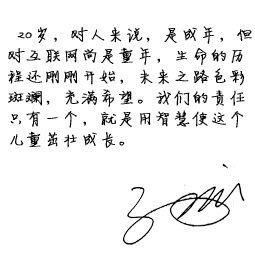 20岁，对人来说，是成年，但
对互联网尚是童年，生命的历
程还刚刚开始，未来之路色彩
斑斓，充满希望。我们的责任
只有一个，就是用智慧使这个
儿童茁壮成长。